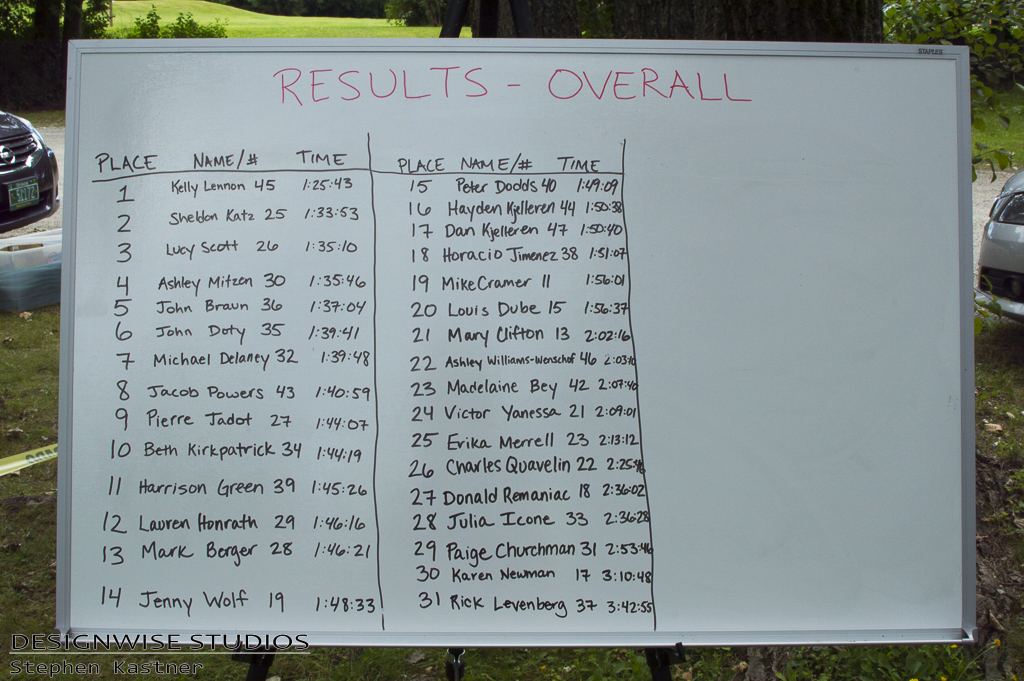 STAPLES
RESULTS - OVERALL
PLACE NAME/# TIME
1 Kelly Lennon 45 1:25:43
2 Sheldon Katz 25 1:33:53
3 Lucy Scott 26 1:35:10
4 Ashley Mitzen 30 1:35:46
5 John Braun 36 1:37:04
6 John Doty 35 1:39:41
7 Michael Delaney 32 1:39:48
8 Jacob Powers 43 1:40:59
9 Pierre Jadot 27 1:44:07
10 Beth Kirkpatrick 34 1:44:19
11 Harrison Green 39 1:45:26
12 Lauren Honrath 29 1:46:16
13 Mark Berger 28 1:46:21
14 Jenny Wolf 19 1:48:33
PLACE NAME/# TIME
15 Peter Dodds 40 1:49:09
16 Hayden Kjelleren 44 1:50:38
17 Dan Kjelleren 47 1:50:40
18 Horacio Jimenez 38 1:51:07
19 Mike Cramer 11 1:56:01
20 Louis Dube 15 1:56:37
21 Mary Clifton 13 2:02:16
22 Ashley Williams-Wenschof 46
23 Madelaine Bey 42 2:07:40
24 Victor Yanessa 21 2:09:01
25 Erika Merrell 23 2:13:12
26 Charles Quavelin 22
27 Donald Remaniac 18 2:36:02
28 Julia Icone 33 2:36:28
29 Paige Churchman 31 2:53:46
30 Karen Newman 17 3:10:48
31 Rick Levenberg 37 3:42:55
DESIGNWISE STUDIOS
Stephen Kastner